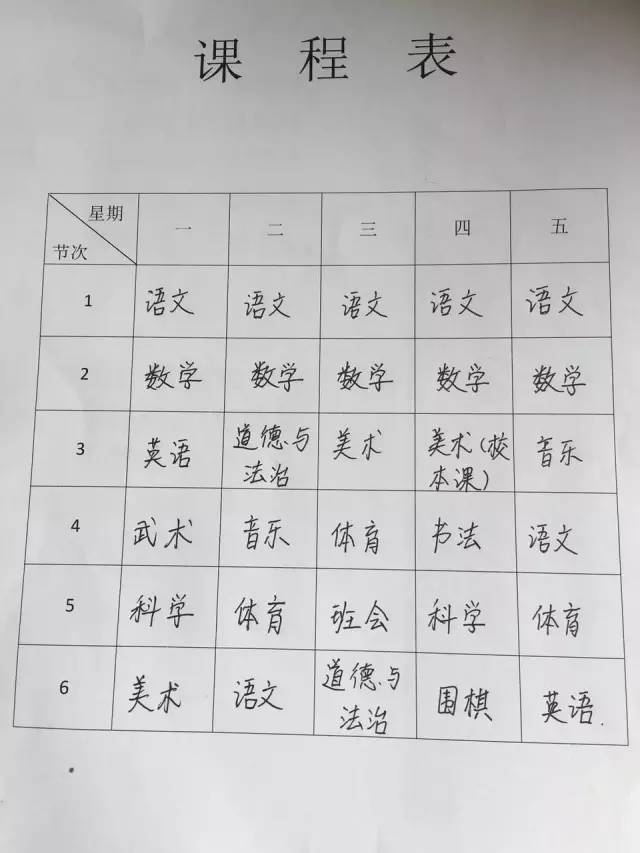 课 程 表
星期 一 二 三 四 五
节次
1 语文 语文 语文 语文 语文
2 数学 数学 数学 数学 数学
3 英语 道德与 美术 美术(校 音乐
法治 本课)
4 武术 音乐 体育 书法 语文
5 科学 体育 班会 科学 体育
6 美术 语文 道德与 围棋 英语.
法治